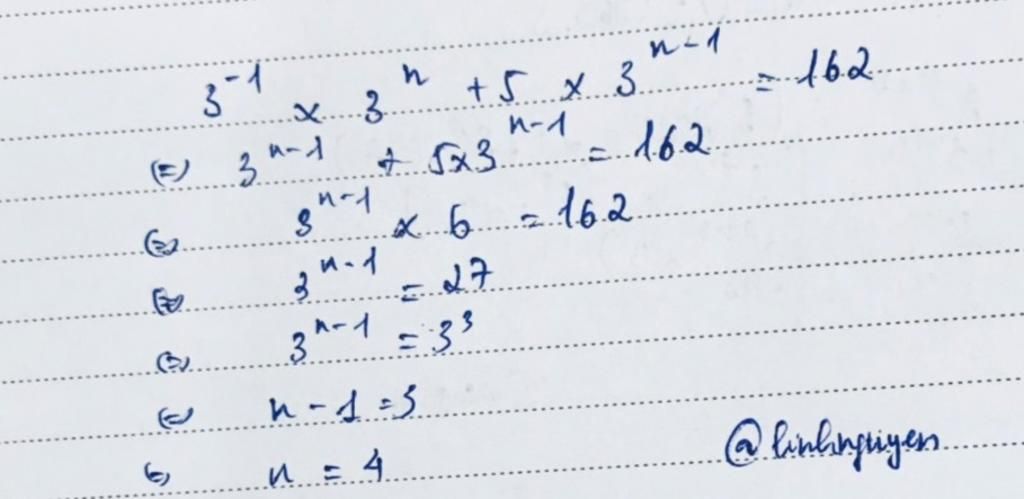 3⁻¹ x 3ⁿ + 5 x 3ⁿ⁻¹ = 162
(=) 3ⁿ⁻¹ + 5x3ⁿ⁻¹ = 162
(=) 3ⁿ⁻¹ x 6 = 162
(=) 3ⁿ⁻¹ = 27
(=) 3ⁿ⁻¹ = 3³
(=) n - 1 = 3
(=) n = 4
@linhnguyen